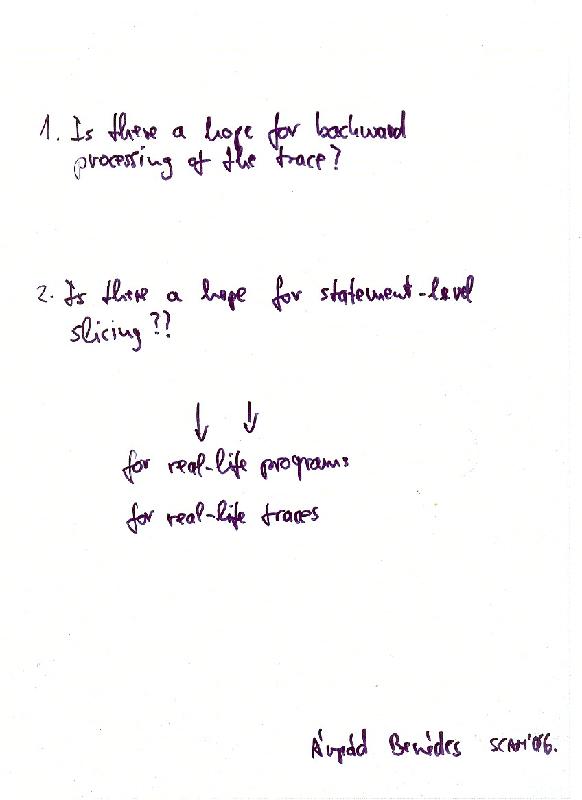 1. Is there a hope for backward
processing of the trace?
2. Is there a hope for statement-level
slicing??
for real-life programs
for real-life traces
Árpád Beszédes SCAM'06.